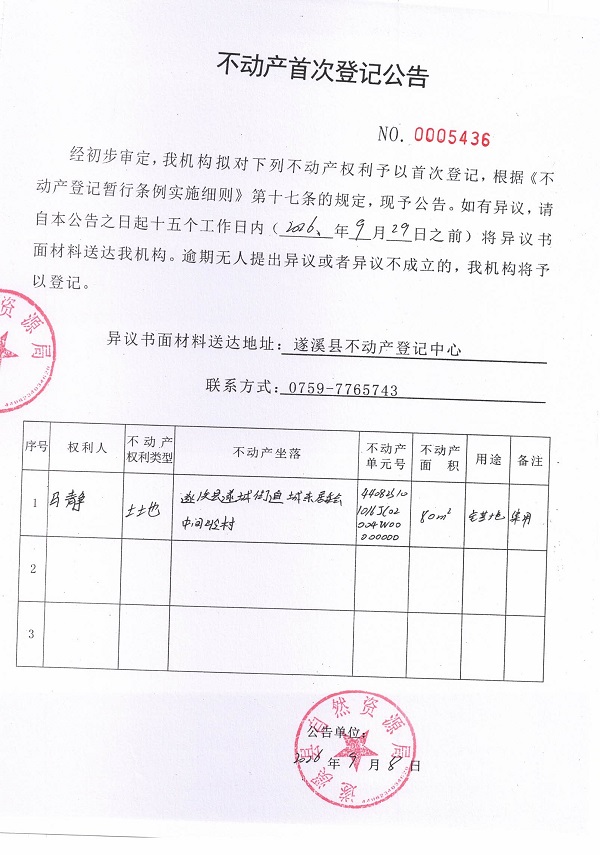 不动产首次登记公告
NO. 0005436
经初步审定，我机构拟对下列不动产权利予以首次登记，根据《不
动产登记暂行条例实施细则》第十七条的规定，现予公告。如有异议，请
自本公告之日起十五个工作日内（2026、年9月29日之前）将异议书
面材料送达我机构。逾期无人提出异议或者异议不成立的，我机构将予
以登记。
资源局
异议书面材料送达地址：遂溪县不动产登记中心
联系方式：0759-7765743
序号 权利人 不动产权利类型 不动产坐落 不动产单元号 不动产面积 用途 备注
1 马静 土地 遂溪县遂城街道城东居委会 80m² 宅基地
2
3
遂溪县自然资源局
公告单位：
2026年9月8日